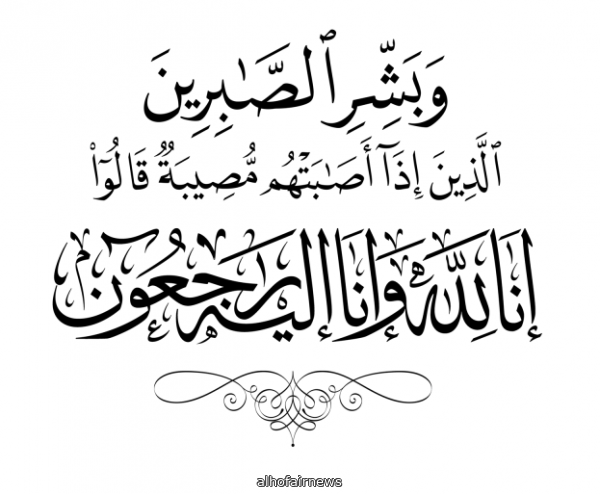 وَبَشِّرِ ٱلصَّـٰبِرِينَ
ٱلَّذِينَ إِذَآ أَصَـٰبَتْهُم مُّصِيبَةٌ قَالُوٓا۟
إنا لله وإنا إليه راجعون
alhofairnews